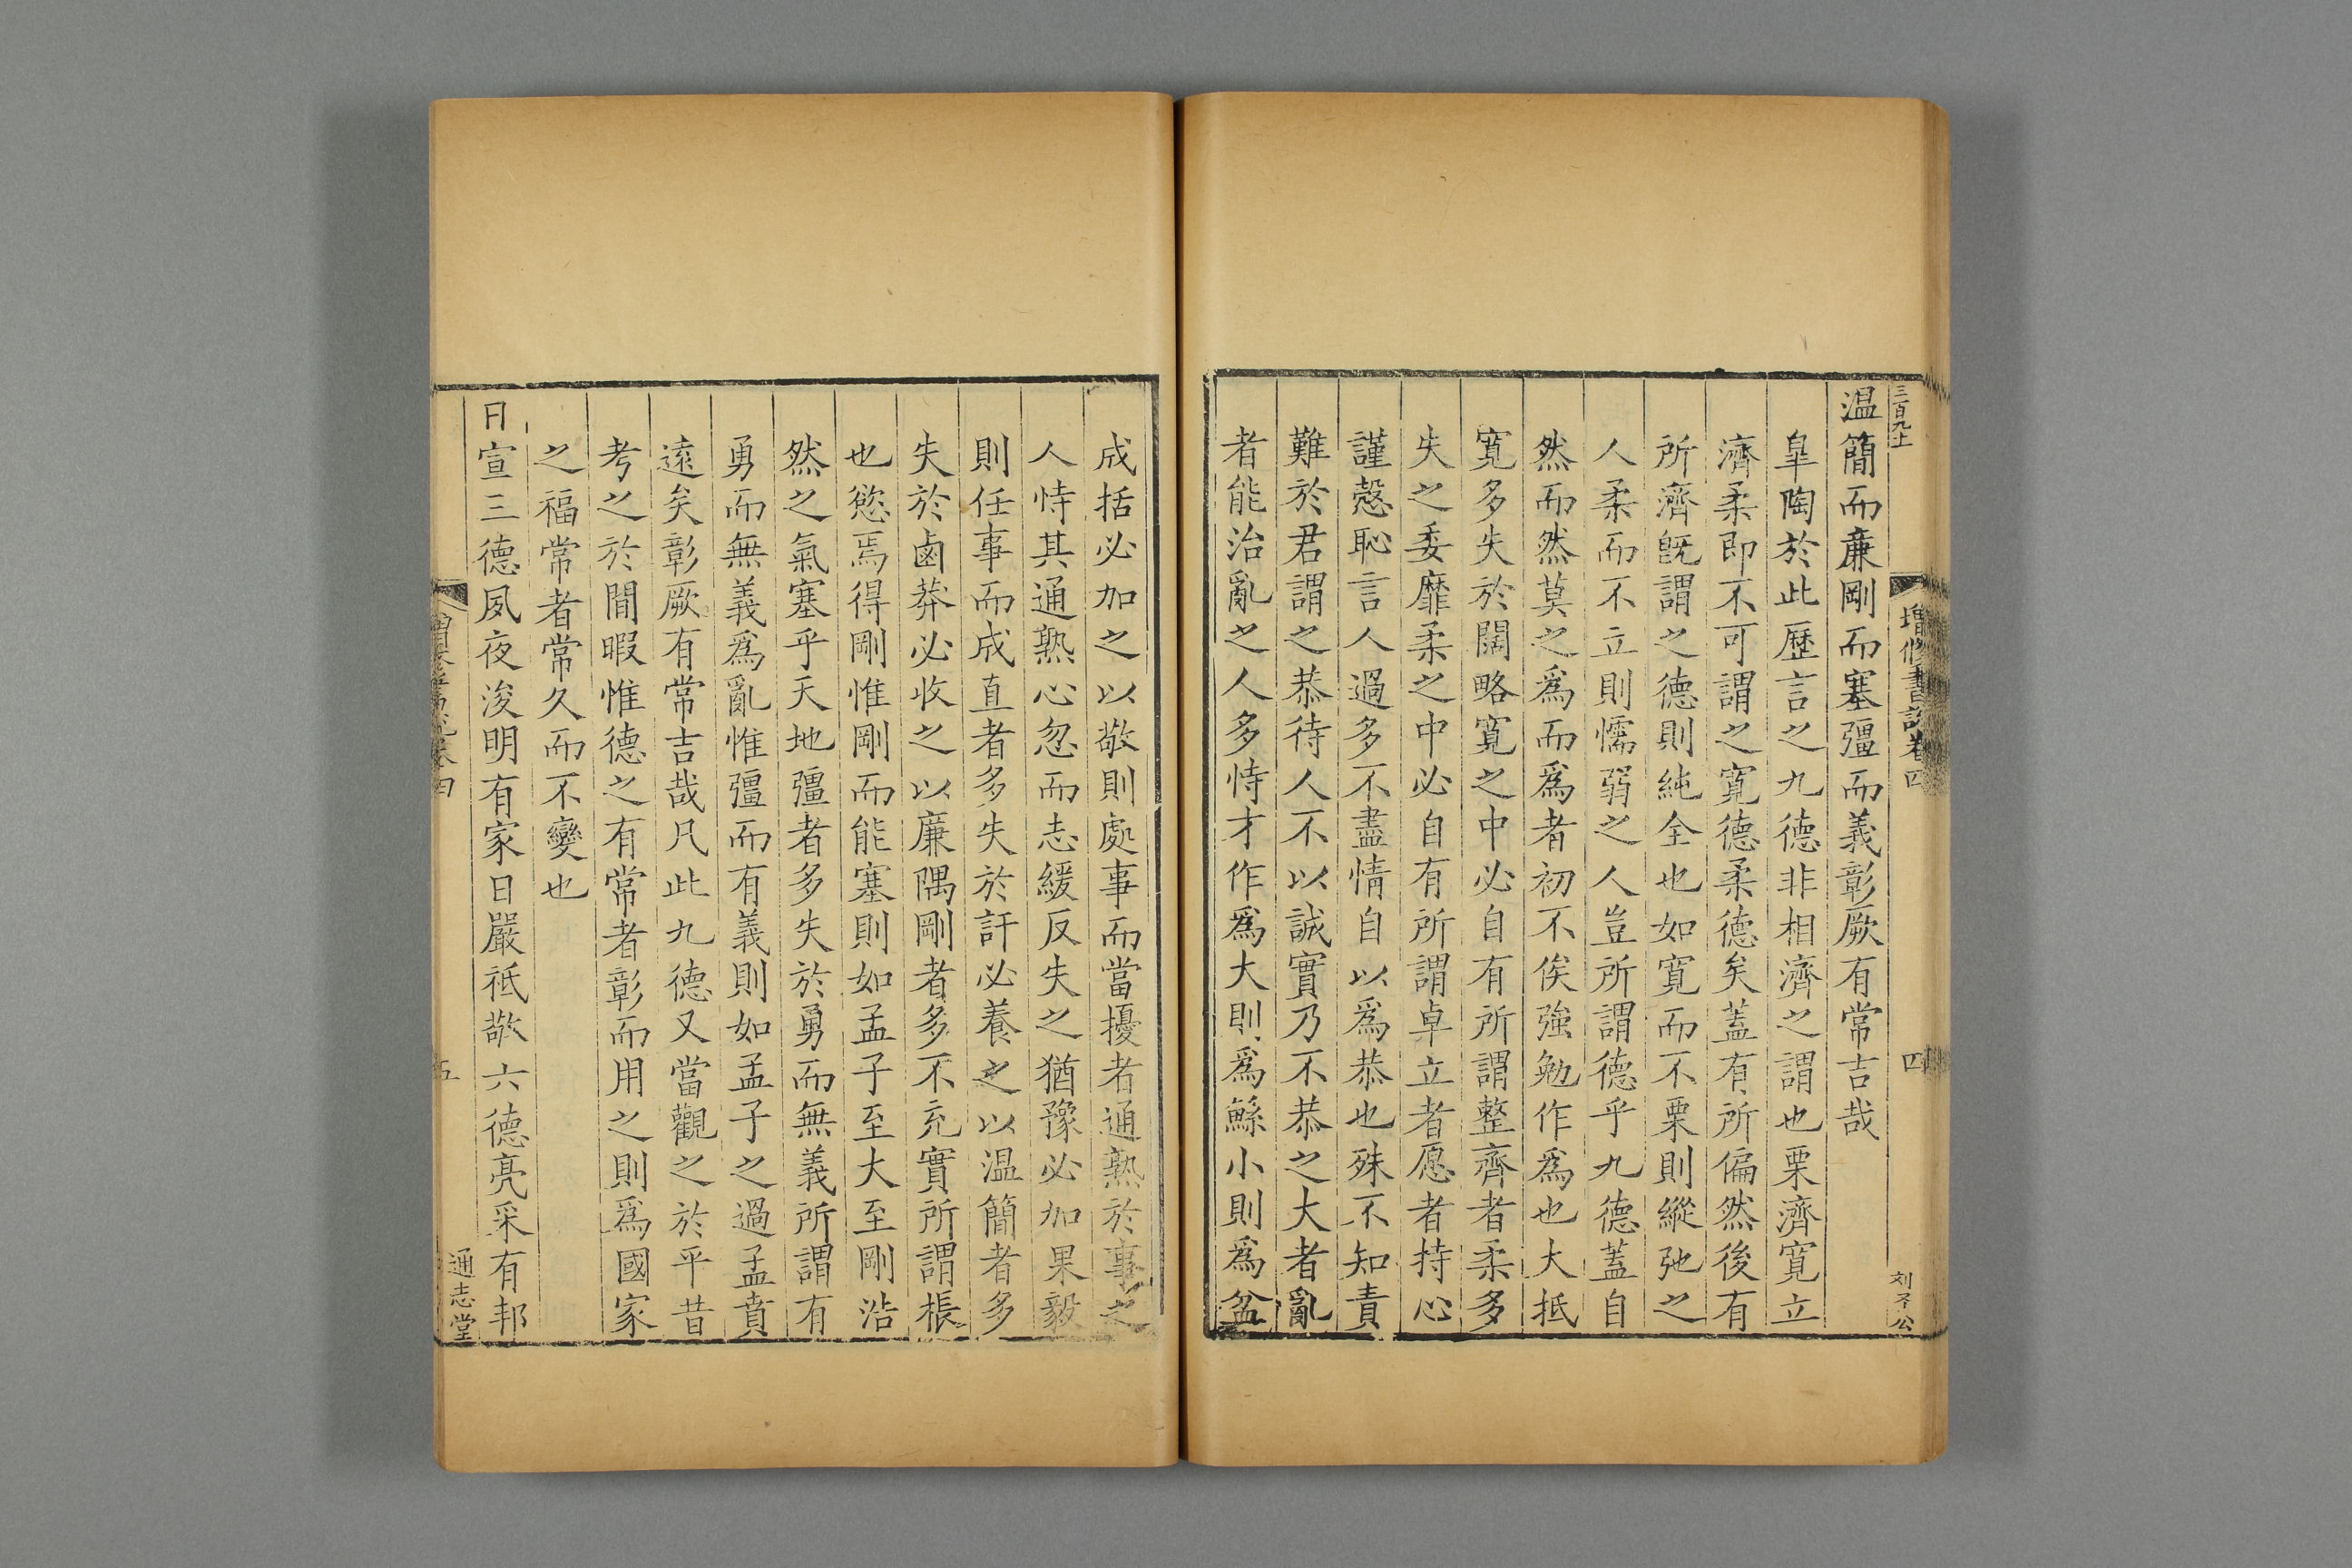 三百九十
增修書說卷四
四
刘子公
温簡而廉剛而塞彊而義彰厥有常吉哉
皐陶於此歷言之九德非相濟之謂也栗濟寛立
濟柔即不可謂之寛德柔德矣蓋有所偏然後有
所濟旣謂之德則純全也如寛而不栗則縱弛之
人柔而不立則懦弱之人豈所謂德乎九德蓋自
然而然莫之爲而爲者初不俟強勉作爲也大抵
寛多失於闊略寛之中必自有所謂整齊者柔多
失之委靡柔之中必自有所謂卓立者愿者持心
謹愨恥言人過多不盡情自以爲恭也殊不知責
難於君謂之恭待人不以誠實乃不恭之大者亂
者能治亂之人多恃才作爲大則爲鯀小則爲盆
成括必加之以敬則處事而當擾者通熟於事之
人恃其通熟心忽而志緩反失之猶豫必加果毅
則任事而成直者多失於訐必養之以温簡者多
失於鹵莽必收之以廉隅剛者多不充實所謂棖
也慾焉得剛惟剛而能塞則如孟子至大至剛浩
然之氣塞乎天地彊者多失於勇而無義所謂有
勇而無義爲亂惟彊而有義則如孟子之過孟賁
遠矣彰厥有常吉哉凡此九德又當觀之於平昔
考之於閒暇惟德之有常者彰而用之則爲國家
之福常者常久而不變也
日宣三德夙夜浚明有家日嚴祗敬六德亮采有邦
五
通志堂